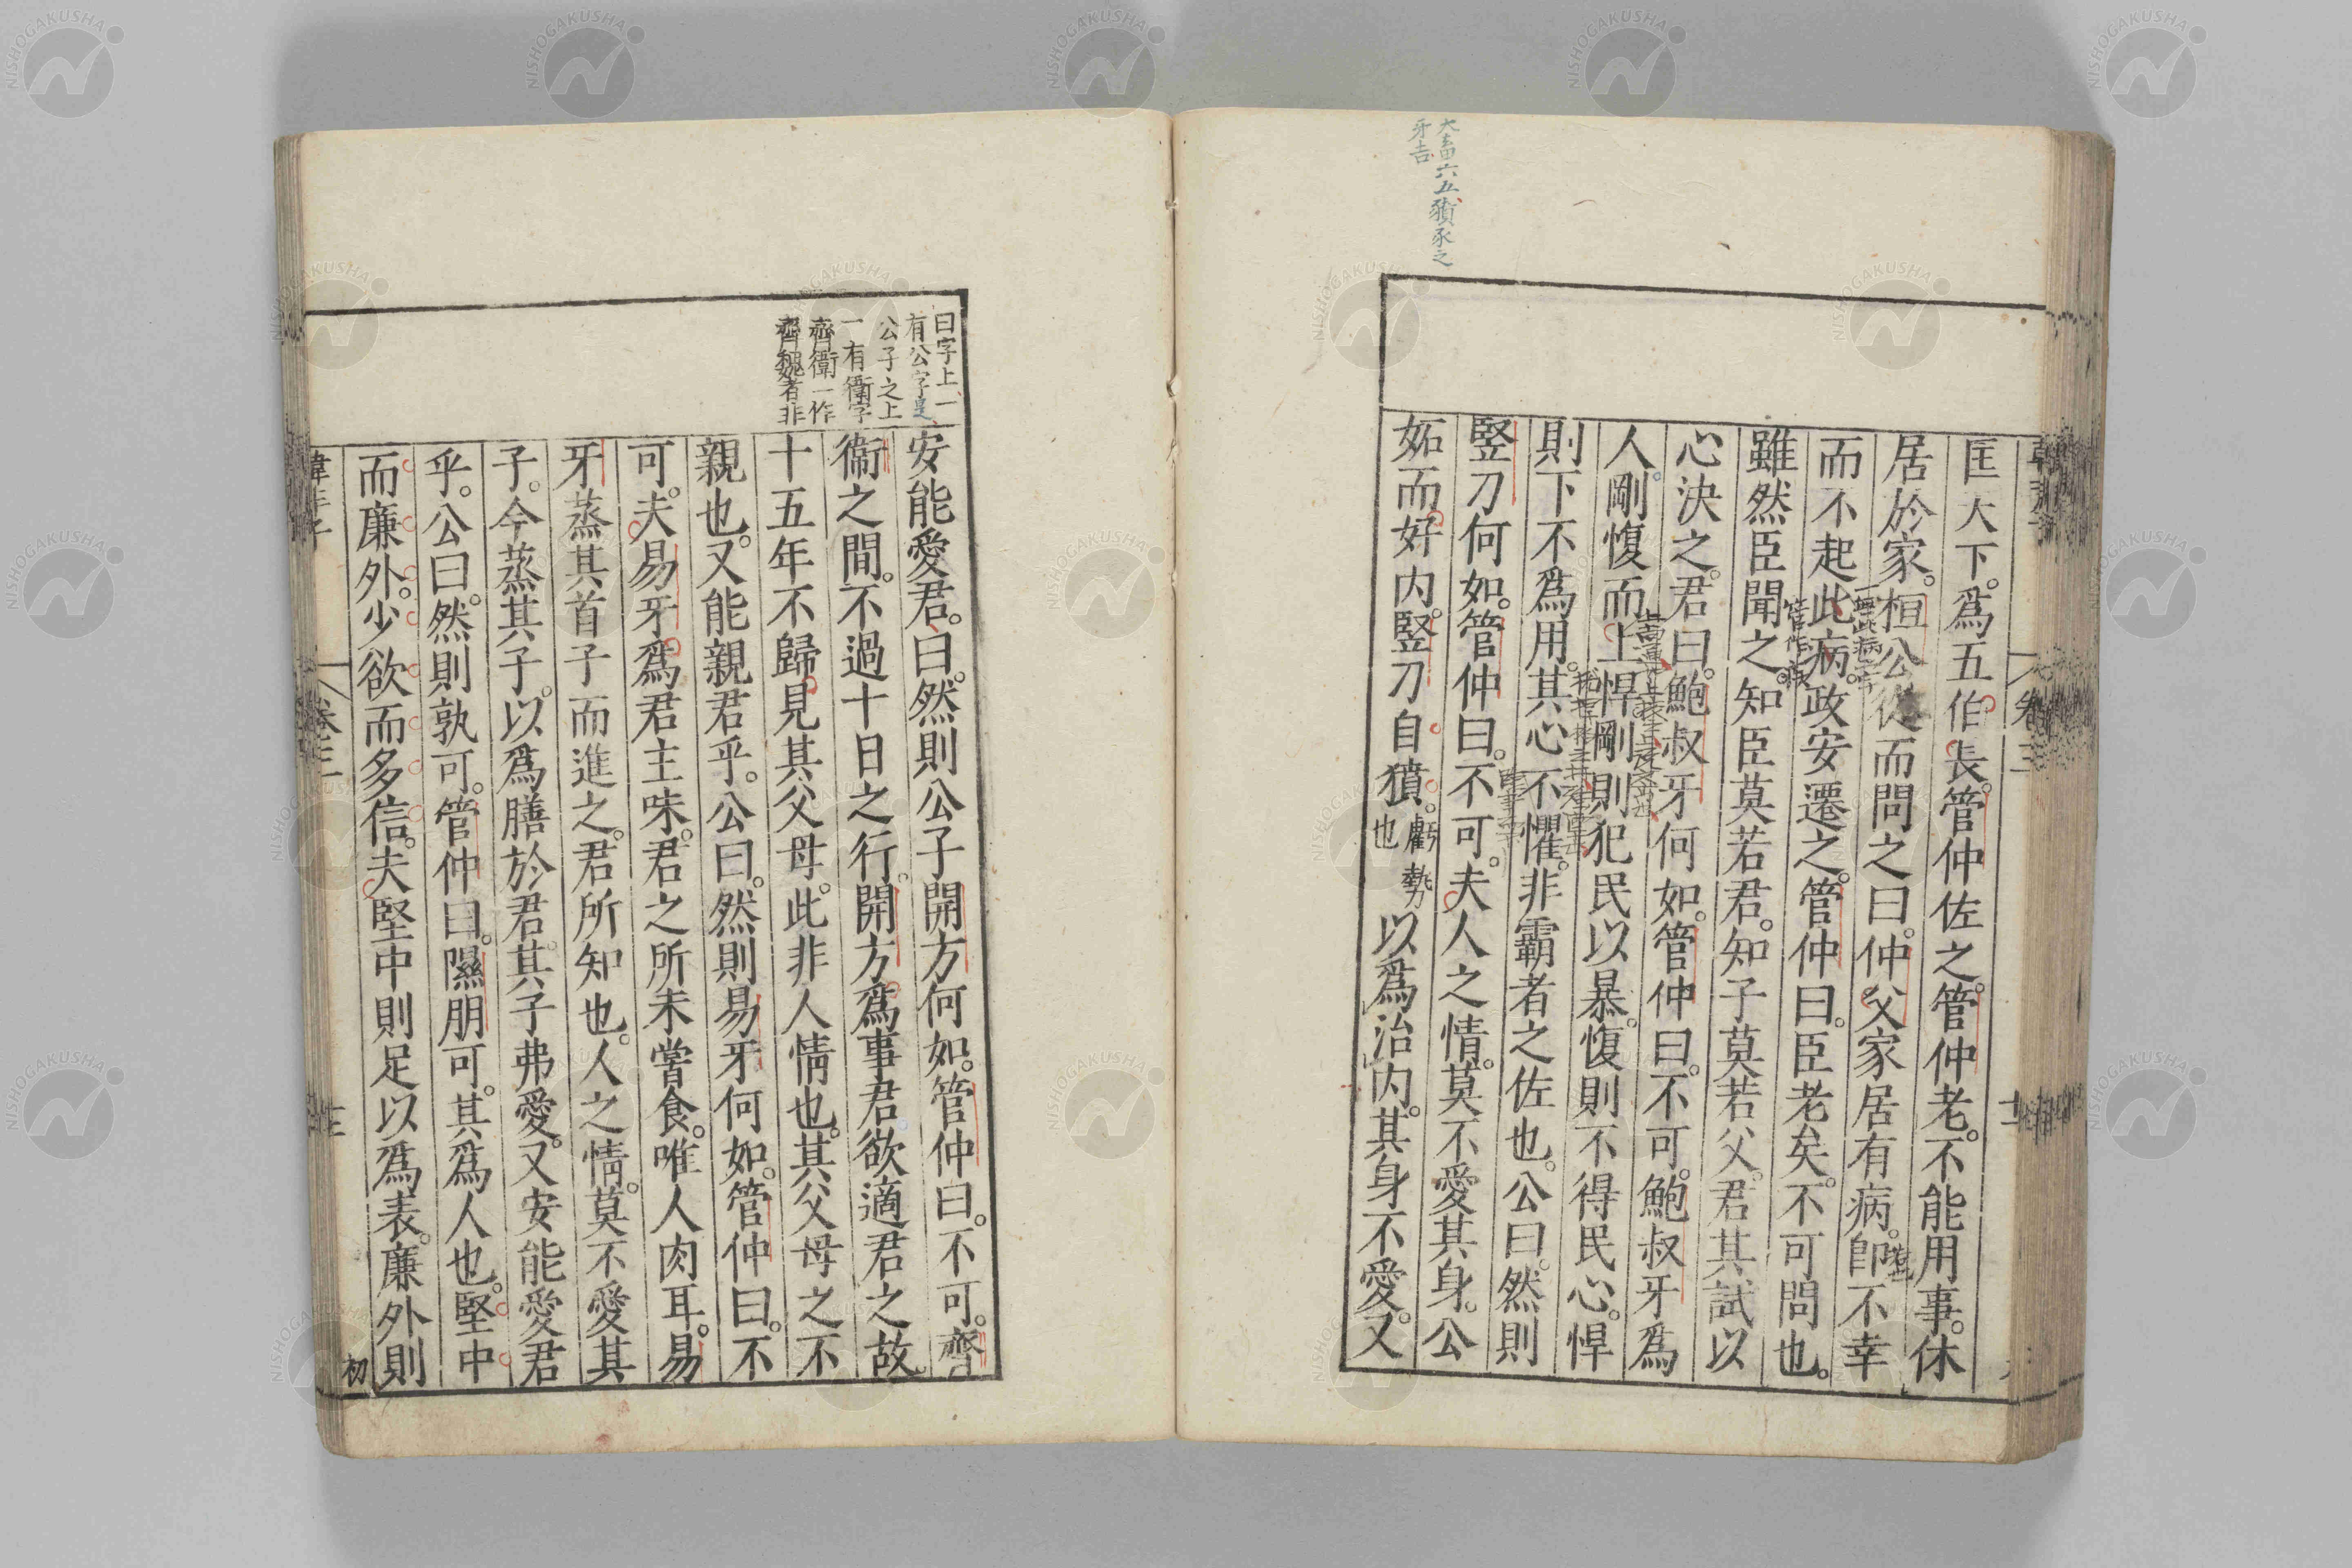 大畜六五豶豕之
牙吉
匡天下。爲五伯長。管仲佐之。管仲老。不能用事。休
居於家。桓公從而問之曰。仲父家居有病。卽不幸
而不起此病。政安遷之。管仲曰。臣老矣。不可問也。
雖然臣聞之。知臣莫若君。知子莫若父。君其試以
心決之。君曰。鮑叔牙何如。管仲曰。不可。鮑叔牙爲
人。剛愎而上悍。剛則犯民以暴。愎則不得民心。悍
則下不爲用。其心不懼。非霸者之佐也。公曰。然則
竪刀何如。管仲曰。不可。夫人之情。莫不愛其身。公
妬而好内。竪刀自獖。虧勢也以爲治内。其身不愛。又
曰字上一
有公字是
公子之上
一有衞字
齊衞一作
齊魏者非
安能愛君。曰。然則公子開方何如。管仲曰。不可。齊
衞之間。不過十日之行。開方爲事君。欲適君之故。
十五年不歸。見其父母。此非人情也。其父母之不
親也。又能親君乎。公曰。然則易牙何如。管仲曰。不
可。夫易牙爲君主味。君之所未嘗食。唯人肉耳。易
牙蒸其首子而進之。君所知也。人之情。莫不愛其
子。今蒸其子。以爲膳於君。其子弗愛。又安能愛君
乎。公曰。然則孰可。管仲曰。隰朋可。其爲人也。堅中
而廉外。少欲而多信。夫堅中則足以爲表。廉外則
初
卷三
NISHOGAKUSHA